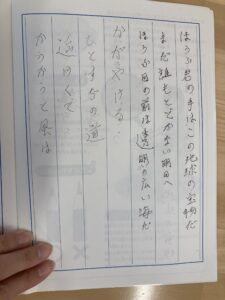 ほうら君の手はこの地球の宝物だ
まだ誰もとどかない明日へ
ほうら目の前は透明の広い海だ
かがやける…
ひとすじの道
遠くて…
かつかつと風は